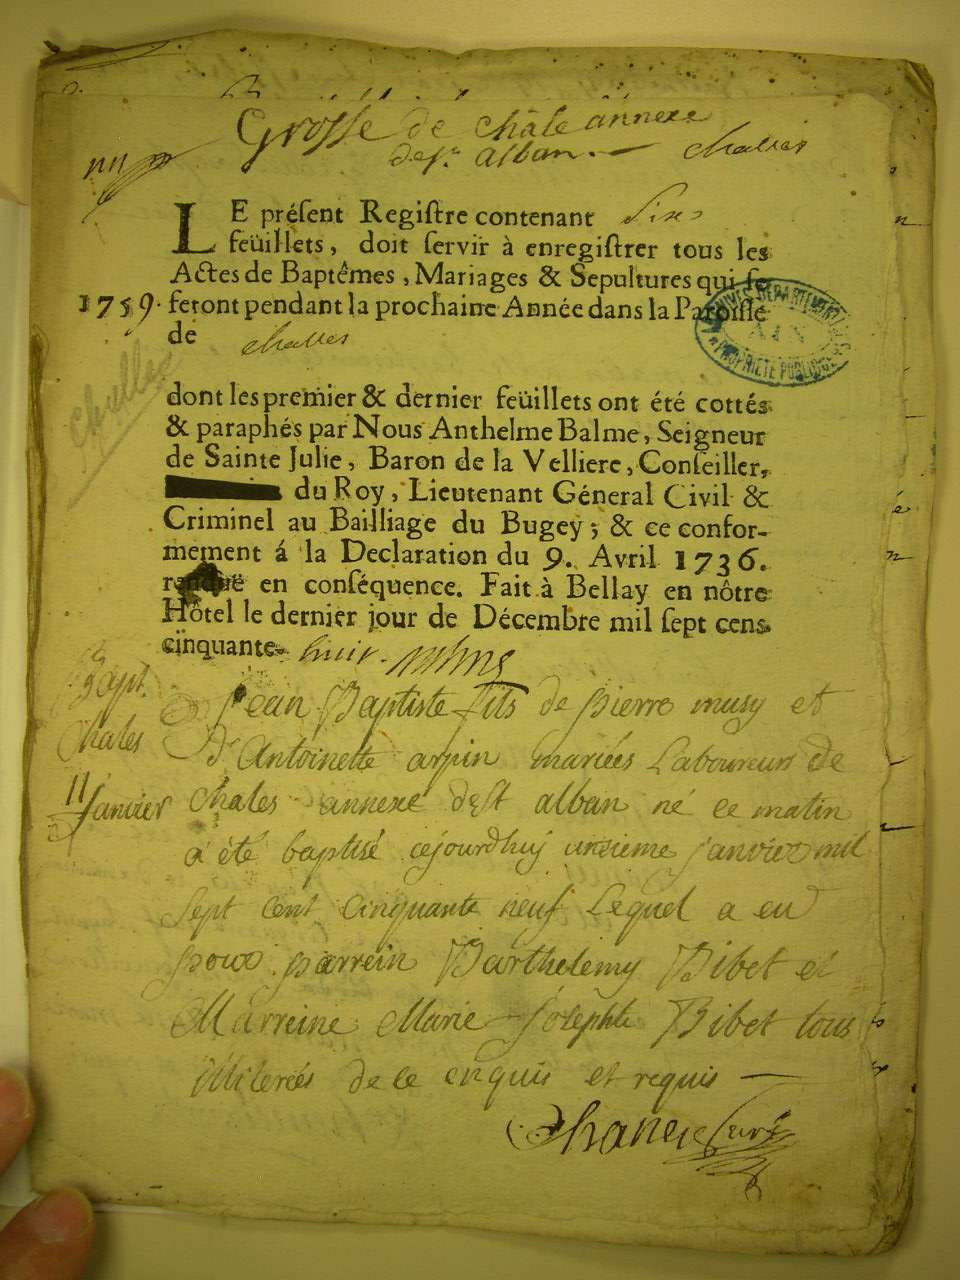 Grosse de châle annexe
de St. alban. — challes
LE préſent Regiſtre contenant Six
feüillets, doit ſervir à enregiſtrer tous les
Actes de Baptêmes, Mariages & Sepultures qui ſe
1759. feront pendant la prochaine Année dans la Paroiſſe
de challes
challes
ARCHIVES DEPARTEMENTALES
AIN
PROPRIETE PUBLIQUE
dont les premier & dernier feüillets ont été cottés
& paraphés par Nous Anthelme Balme, Seigneur
de Sainte Julie, Baron de la Velliere, Conſeiller,
du Roy, Lieutenant Géneral Civil &
Criminel au Bailliage du Bugey; & ce confor-
mement á la Declaration du 9. Avril 1736.
rendüe en conſéquence. Fait à Bellay en nôtre
Hôtel le dernier jour de Décembre mil ſept cens
cinquante- huit.
Bapt.
Chales
11 Janvier
Jean Baptiste fils de pierre musy et
d'Antoinette arpin mariées Laboureurs de
Chales annexe de St alban né ce matin
a été baptisé cejourdhuy unzieme janvier mil
Sept cent cinquante neuf Lequel a eu
pour parrein Barthelemy Bibet et
Marreine Marie Josephte Bibet tous
illiterées de ce enquis et requis —
Curé